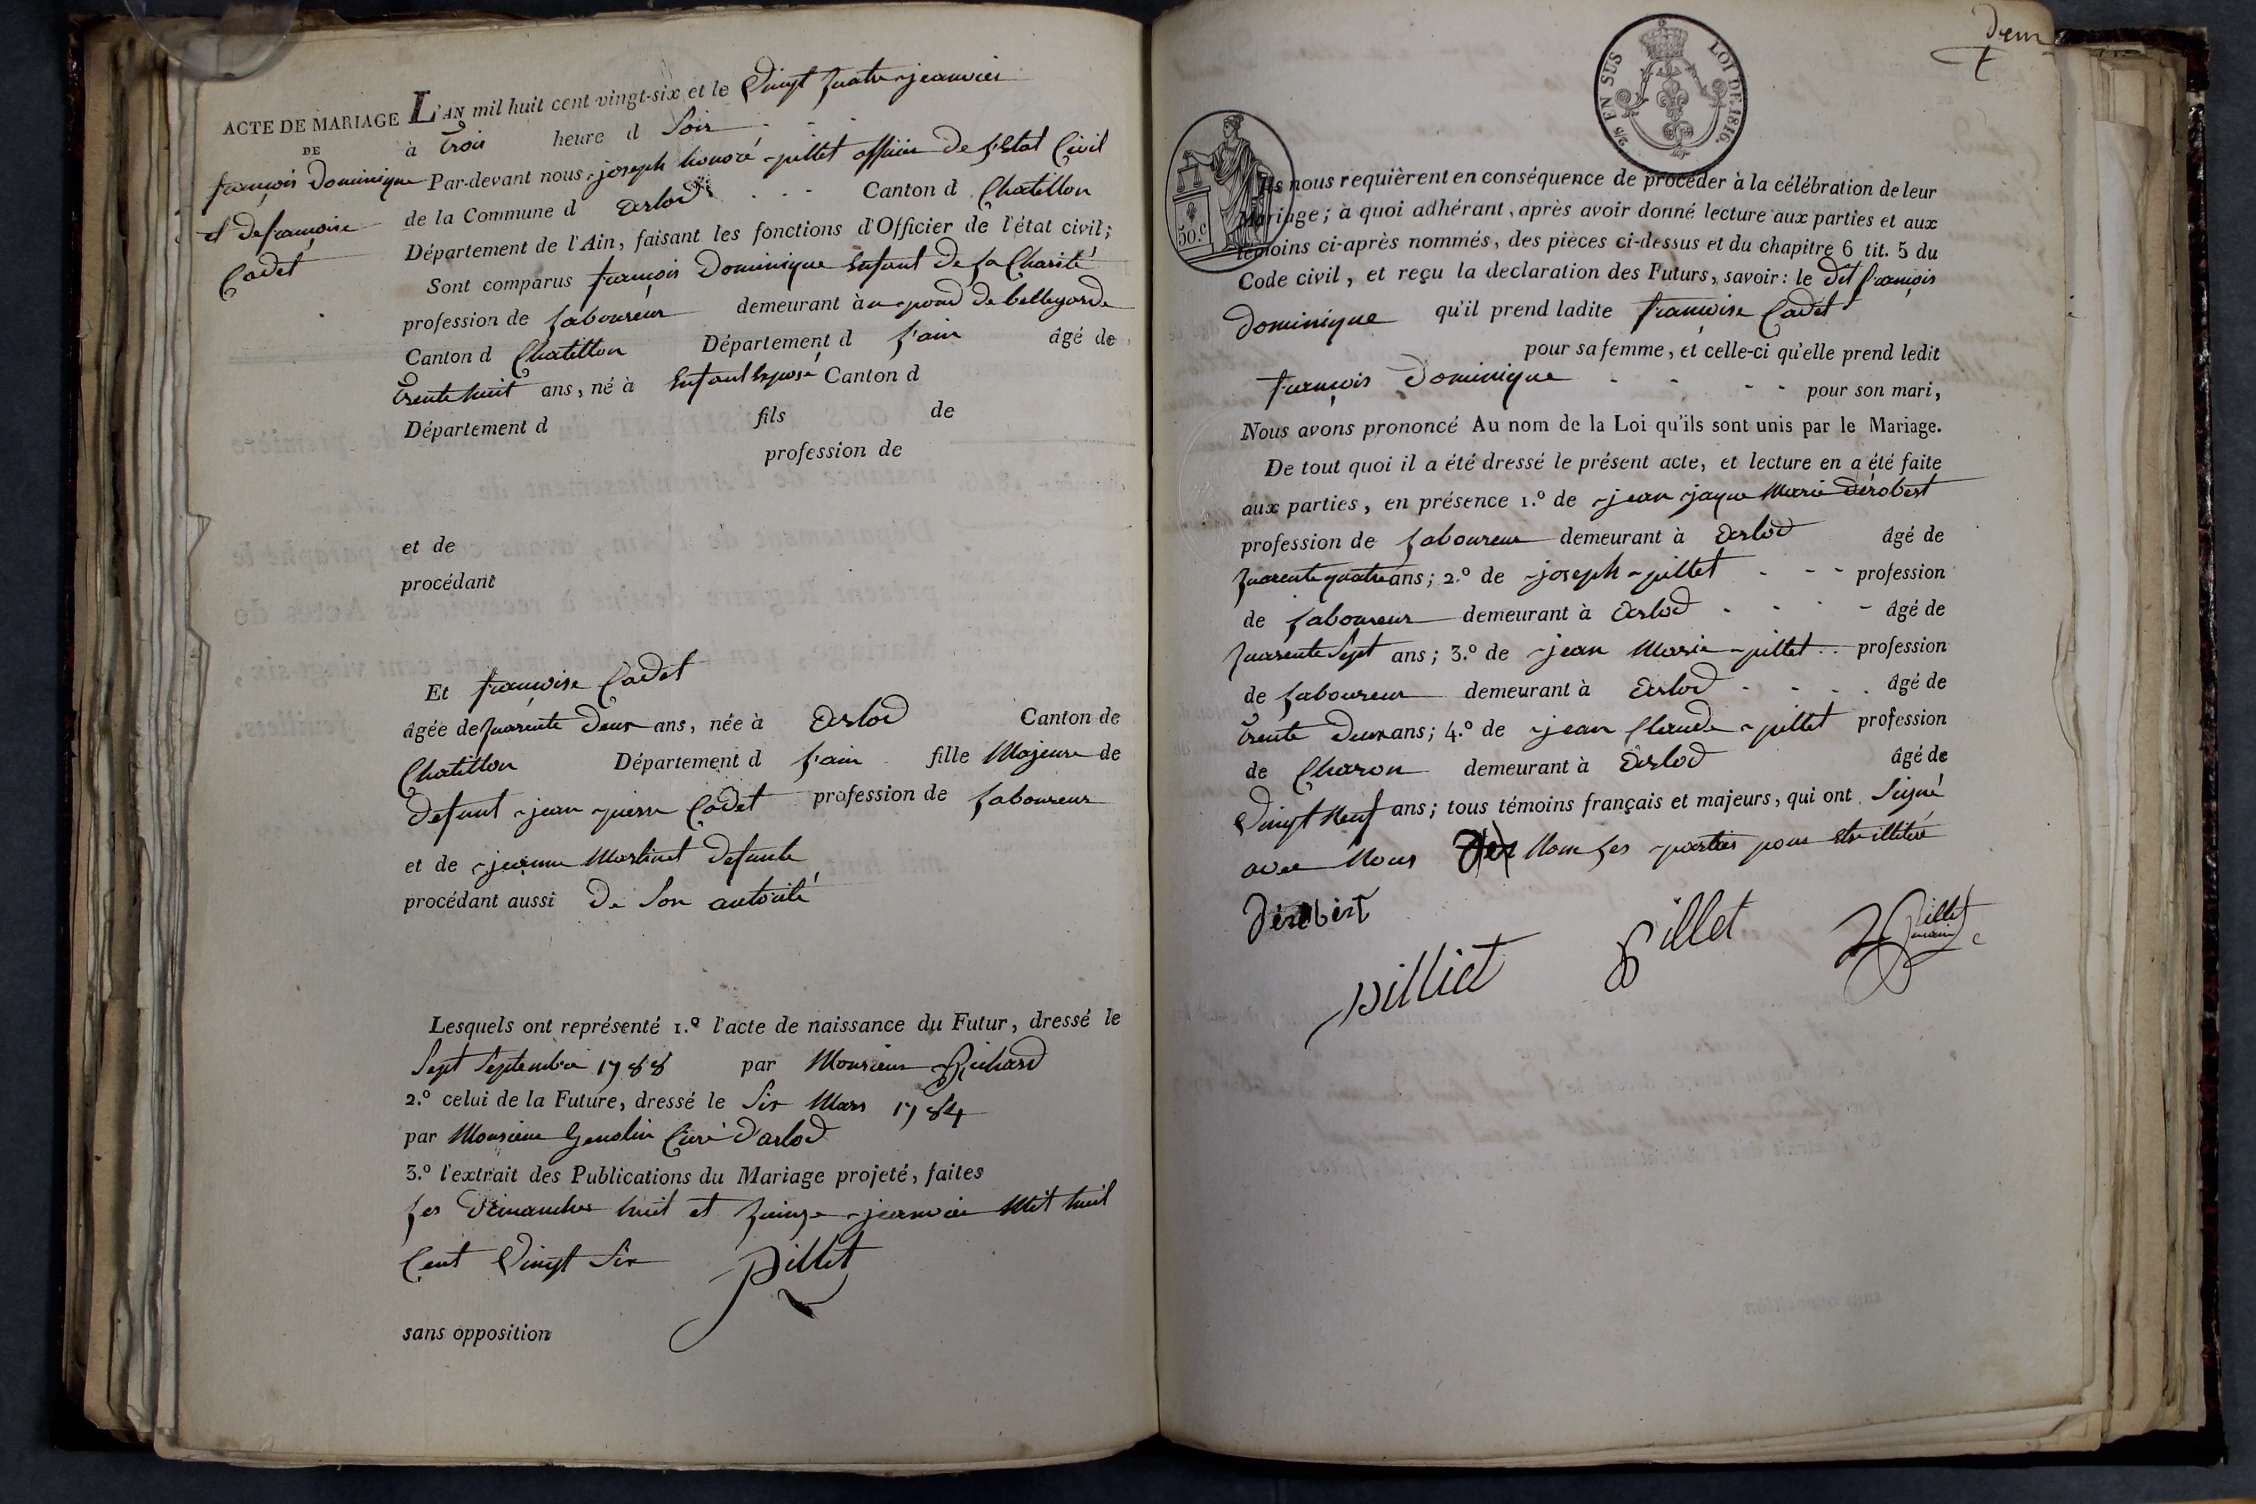 ACTE DE MARIAGE
DE
françois Dominique
et de françoise
Cadet
L'AN mil huit cent vingt-six et le Vingt quatre jeanvier
à trois heure d Soir
Par-devant nous joseph honoré pillet officier de l'Etat Civil
de la Commune d Arlod Canton d Chatillon
Département de l'Ain, faisant les fonctions d'Officier de l'état civil;
Sont comparus françois Dominique Enfant de la Charité
profession de laboureur demeurant à au pond de bellegarde
Canton d Chatillon Département d l'ain âgé de
trente huit ans, né à Enfant Exposé Canton d
Département d fils de
profession de
et de
procédant
Et françoise Cadet
âgée de quarente deux ans, née à Arlod Canton de
Chatillon Département d l'ain fille Majeure de
defunt jean pierre Cadet profession de laboureur
et de jeanne Martinet defunte
procédant aussi de Son autorité
Lesquels ont représenté 1.º l'acte de naissance du Futur, dressé le
Sept Septembre 1788 par Monsieur Richard
2.º celui de la Future, dressé le Six Mars 1784
par Monsieur Genolin Curé d'arlod
3.º l'extrait des Publications du Mariage projeté, faites
les Dimanches huit et quinze jeanvier Mil huit
Cent Vingt Six pillet
sans opposition
Deux
25 EN SUS LOI DE 1816.
50.c
Ils nous requièrent en conséquence de procéder à la célébration de leur
Mariage; à quoi adhérant, après avoir donné lecture aux parties et aux
témoins ci-après nommés, des pièces ci-dessus et du chapitre 6 tit. 5 du
Code civil, et reçu la declaration des Futurs, savoir: le dit françois
dominique qu'il prend ladite françoise Cadet
pour sa femme, et celle-ci qu'elle prend ledit
françois Dominique pour son mari,
Nous avons prononcé Au nom de la Loi qu'ils sont unis par le Mariage.
De tout quoi il a été dressé le présent acte, et lecture en a été faite
aux parties, en présence 1.º de jean jaque Marie dérobert
profession de laboureur demeurant à Arlod âgé de
quarente quatre ans; 2.º de joseph pillet profession
de laboureur demeurant à Arlod âgé de
quarente Sept ans; 3.º de jean Marie pillet profession
de laboureur demeurant à Arlod âgé de
trente deux ans; 4.º de jean Claude pillet profession
de Charon demeurant à Arlod âgé de
Vingt Neuf ans; tous témoins français et majeurs, qui ont Signé
avec Nous Non les parties pour etre illitéré
dérobert
pilliet
pillet
pillet